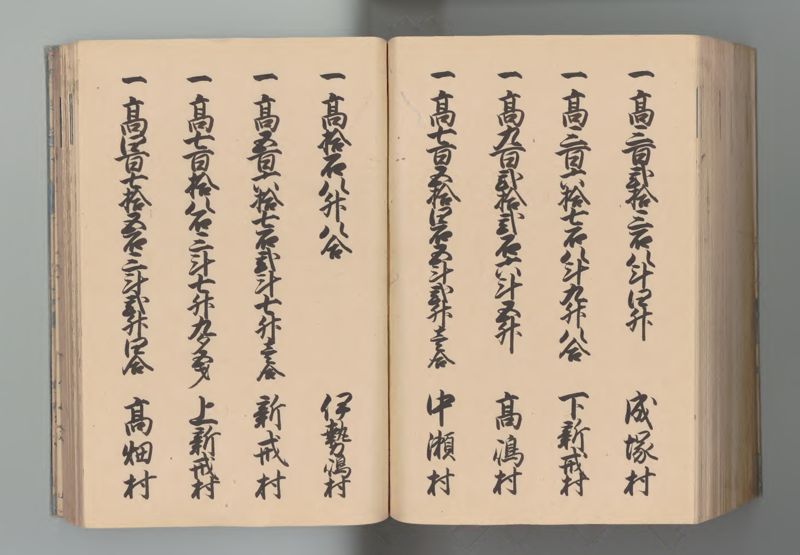 一高三百弐拾三石八斗四升 成塚村
一高三百六拾七石八斗九升八合 下新戒村
一高九百弐拾弐石六斗五升 高嶋村
一高七百五拾四石五斗弐升壱合 中瀬村
一高拾石八升八合 伊勢嶋村
一高五百六拾七石弐斗七升壱合 新戒村
一高七百拾八石三斗七升九夕五才 上新戒村
一高四百七拾五石三斗弐升四合 高畑村